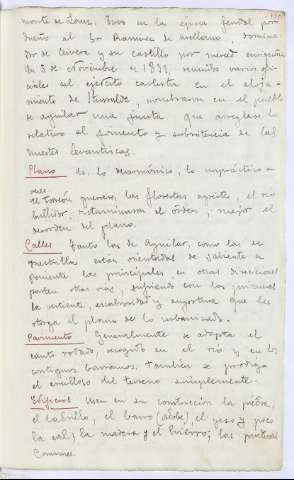 monte de Lous. Tuvo en la época feudal por
dueño al Sr Ramirez de Arellano, domina-
dor de Cervera y su castillo por merced
de 3 de Noviembre de 1837, reunidos varios ofi-
ciales del ejército carlista en el aloja-
miento de Iturralde, nombraron en el pueblo
de Aguilar una junta que arreglase lo
relativo al fomento y subsistencia de las
huestes levantiscas.
Plano de lo inarmónico, lo impráctico a
veces
el torreón guerrero, las florestas agreste, el río
bullidor, determinaron el orden, mejor el
desorden del plano.
Calles Tanto las de Aguilar, como las de
están orientadas de saliente a
poniente las principales, en otras direcciones
parten otras vías, sufriendo con las primeras
la vertiente, escabrosidad y angostura que les
otorga el plano de lo urbanizado.
Pavimento Generalmente se adopta el
canto rodado, recogido en el río y en los
contiguos barrancos. También se prodiga
el morrilloso del terreno simplemente.
Edificios Usan en su construcción la piedra,
el ladrillo, el barro (adobe), el yeso y poco
la cal; la madera y el hierro; los
Comunes.